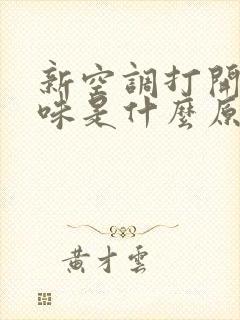 新空調打開
味是什麼原
黃才雲